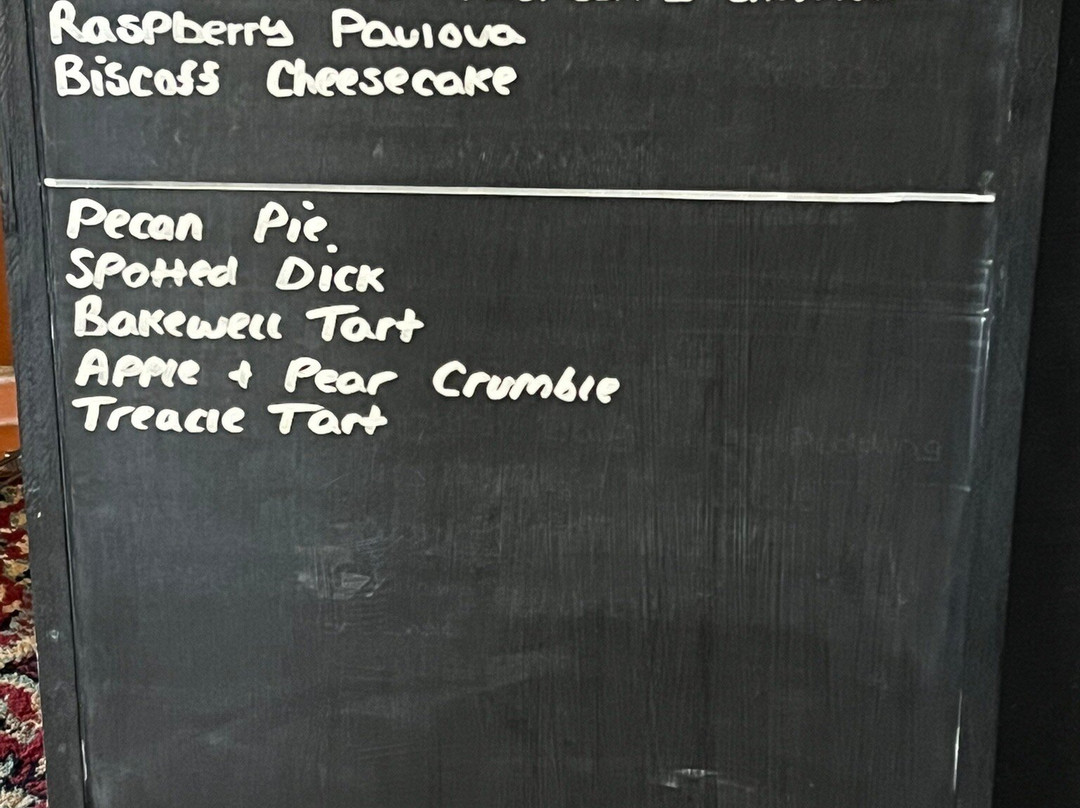 Raspberry Pavlova
Biscoff Cheesecake
Pecan Pie.
Spotted Dick
Bakewell Tart
Apple + Pear Crumble
Treacle Tart